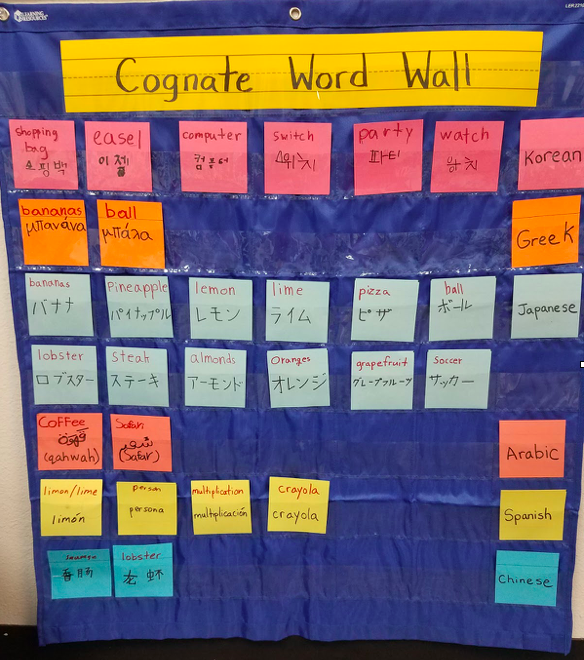 LEARNING
RESOURCES
Cognate Word Wall
shopping
bag
쇼핑백
easel
이젤
computer
컴퓨터
switch
스위치
party
파티
watch
와치
Korean
bananas
μπανάνα
ball
μπάλα
Greek
bananas
バナナ
Pineapple
パイナップル
lemon
レモン
lime
ライム
pizza
ピザ
ball
ボール
Japanese
lobster
ロブスター
Steak
ステーキ
almonds
アーモンド
Oranges
オレンジ
grapefruit
グレープフルーツ
Soccer
サッカー
Coffee
قهوة
(qahwah)
Safari
سفر
(Safar)
Arabic
limon/lime
limón
person
persona
multiplication
multiplicación
crayola
crayola
Spanish
香肠
lobster
龙虾
Chinese